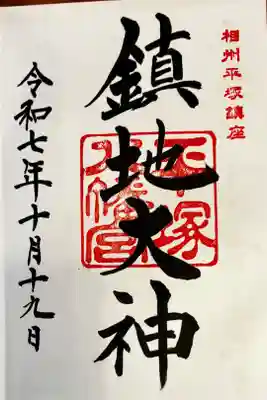 相州平塚鎮座
鎮地大神
平塚八幡宮
令和七年十月十九日